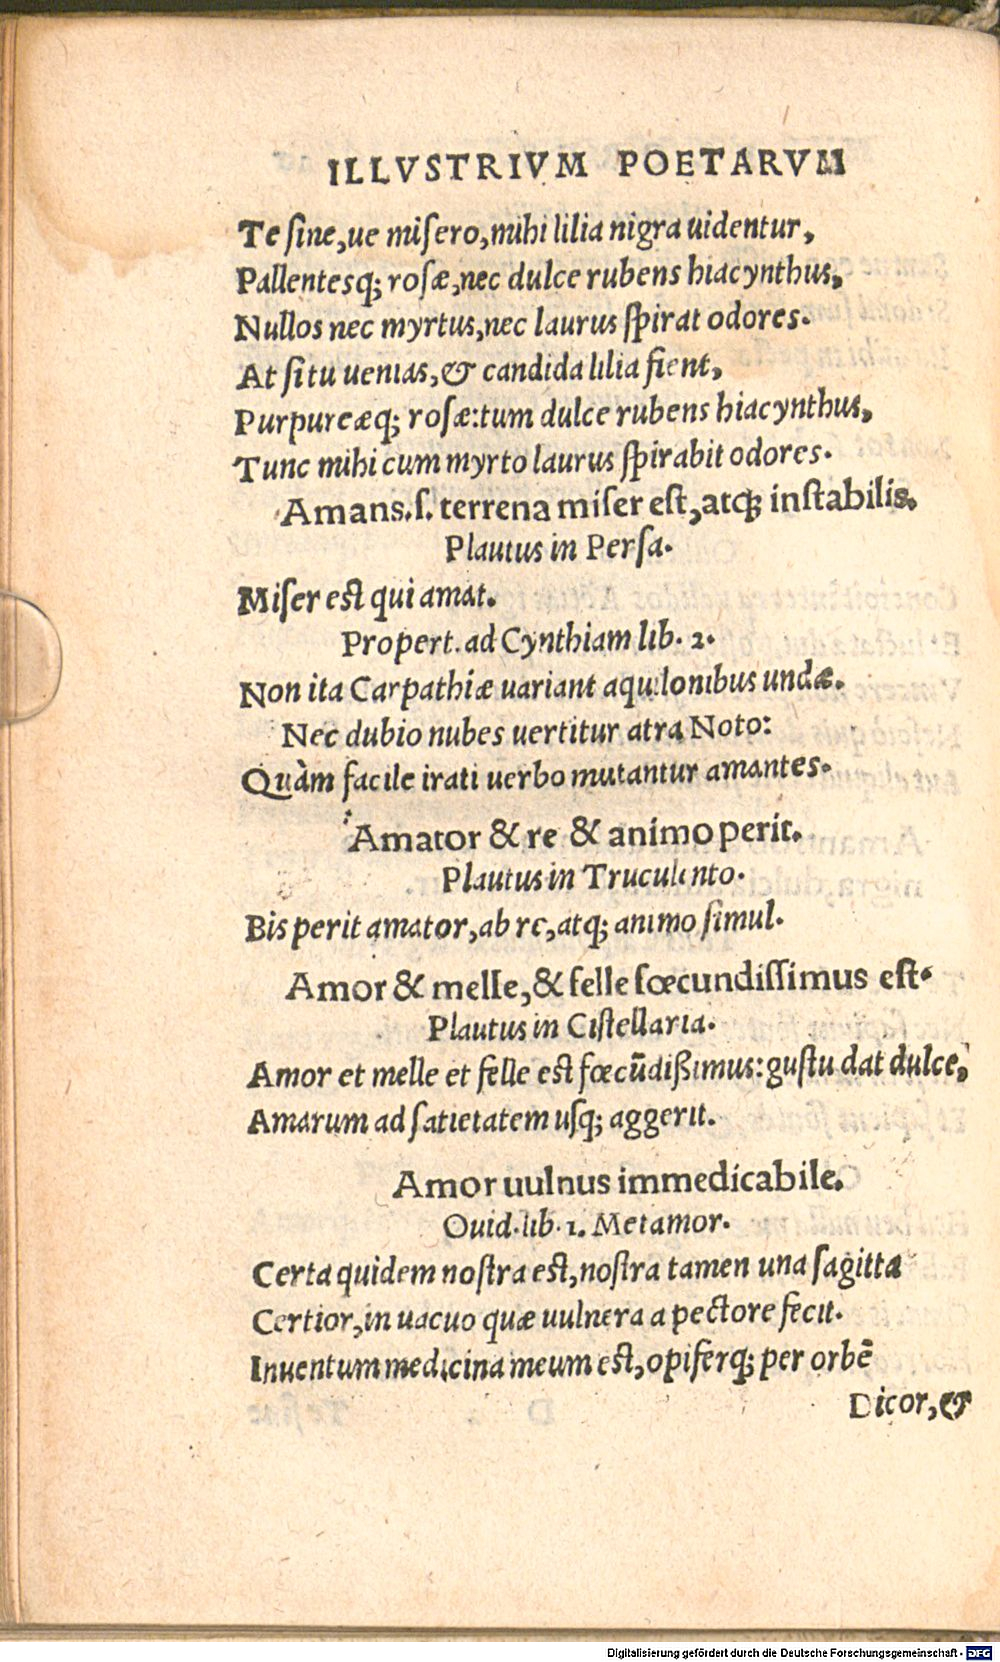 ILLVSTRIVM POETARVM
Te sine,ue misero,mihi lilia nigra uidentur,
Pallentesq; rosæ,nec dulce rubens hiacynthus,
Nullos nec myrtus,nec laurus spirat odores.
At si tu uenias,& candida lilia fient,
Purpureæq; rosæ:tum dulce rubens hiacynthus,
Tunc mihi cum myrto laurus spirabit odores.
Amans.s. terrena miser est,atq; instabilis.
Plautus in Persa.
Miser est qui amat.
Propert. ad Cynthiam lib. 2.
Non ita Carpathiæ uariant aquilonibus undæ.
Nec dubio nubes uertitur atra Noto:
Quàm facile irati uerbo mutantur amantes.
Amator & re & animo perit.
Plautus in Truculento.
Bis perit amator,ab re,atq; animo simul.
Amor & melle,& felle fœcundissimus est.
Plautus in Cistellaria.
Amor et melle et felle est fœcūdißimus:gustu dat dulce,
Amarum ad satietatem usq; aggerit.
Amor uulnus immedicabile.
Ouid.lib.1. Metamor.
Certa quidem nostra est,nostra tamen una sagitta
Certior,in uacuo quæ uulnera a pectore fecit.
Inuentum medicina meum est,opiferq; per orbē
Dicor,&
Digitalisierung gefördert durch die Deutsche Forschungsgemeinschaft - DFG